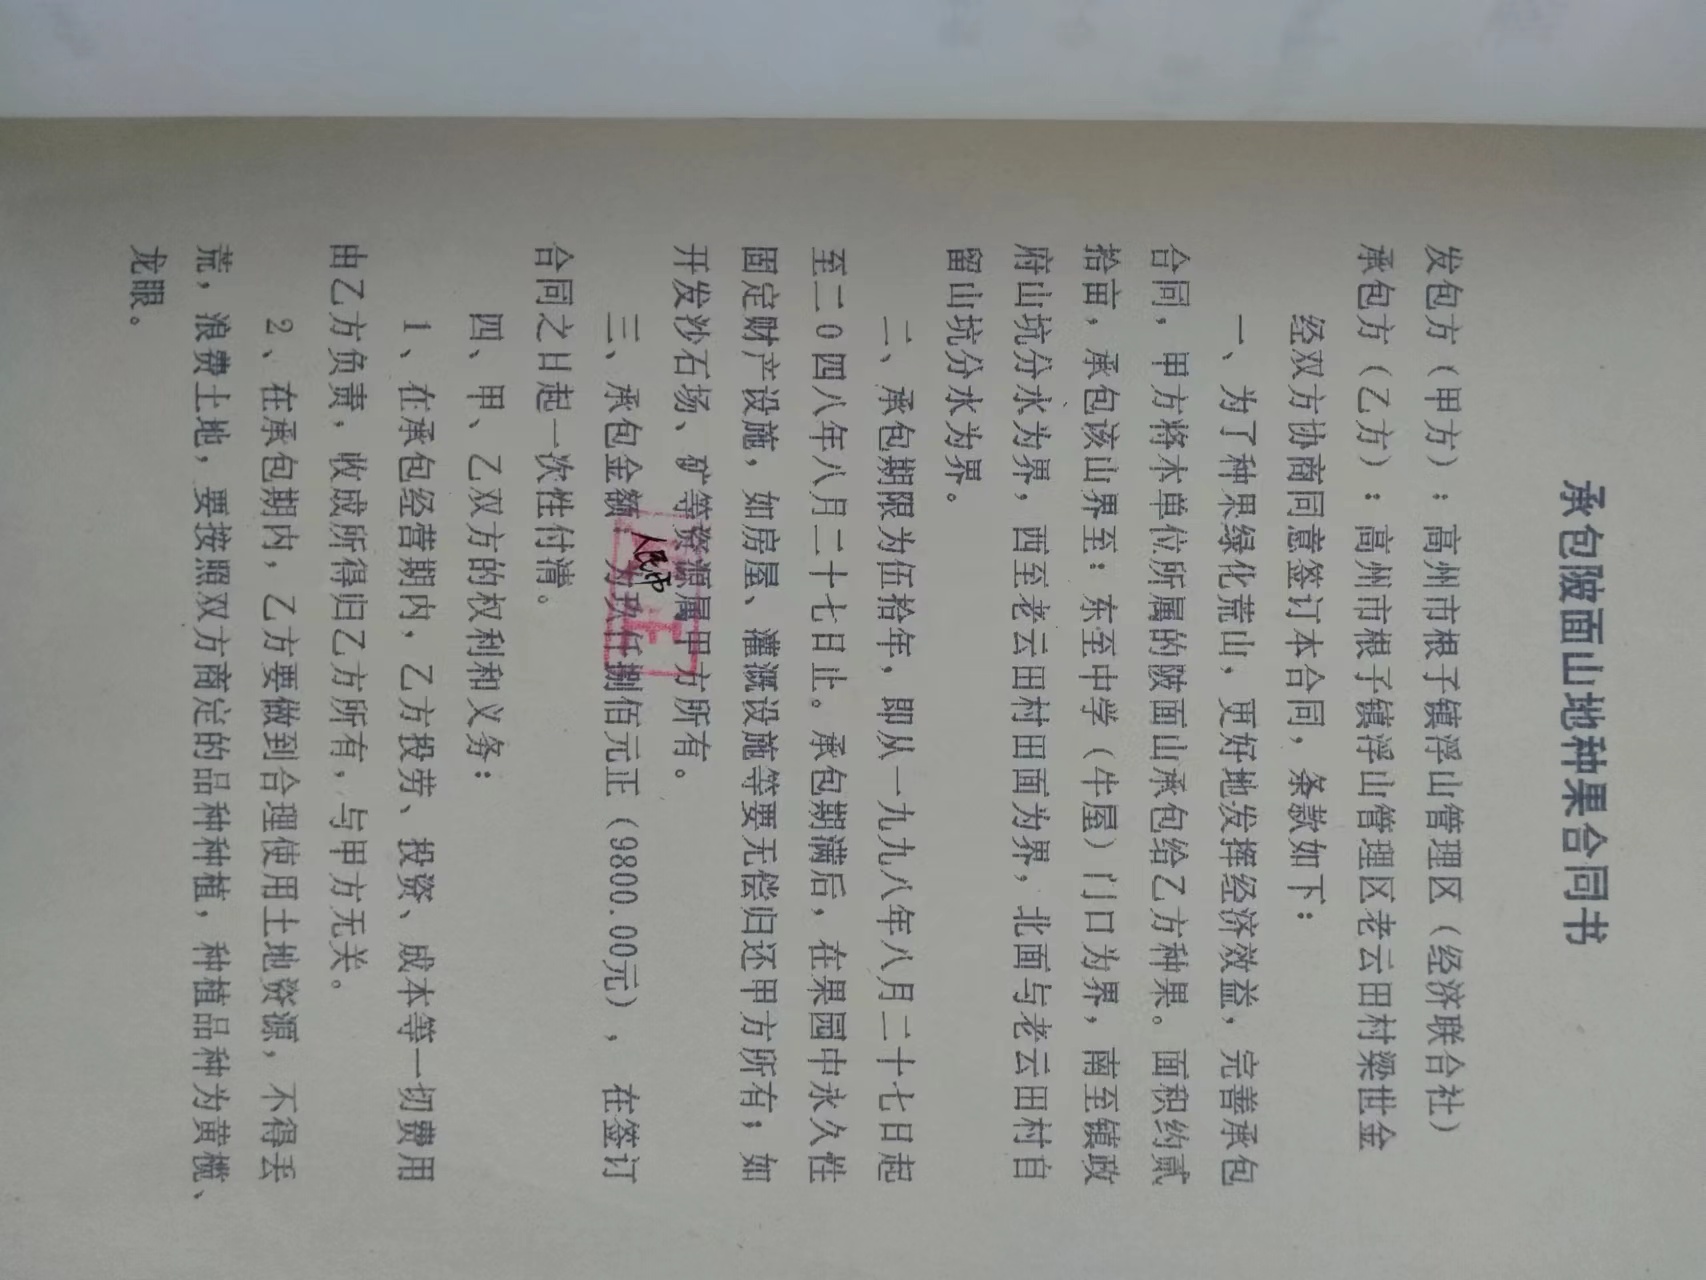 承包陂面山地种果合同书
发包方（甲方）：高州市根子镇浮山管理区（经济联合社）
承包方（乙方）：高州市根子镇浮山管理区老云田村梁世金
经双方协商同意签订本合同，条款如下：
一、为了种果绿化荒山，更好地发挥经济效益，完善承包
合同，甲方将本单位所属的陂面山承包给乙方种果。面积约贰
拾亩，承包该山界至：东至中学（牛屋）门口为界，南至镇政
府山坑分水为界，西至老云田村田面为界，北面与老云田村自
留山坑分水为界。
二、承包期限为伍拾年，即从一九九八年八月二十七日起
至二0四八年八月二十七日止。承包期满后，在果园中永久性
固定财产设施，如房屋、灌溉设施等要无偿归还甲方所有；如
开发沙石场、矿等资源属甲方所有。
人民币
三、承包金额：为玖仟捌佰元正（9800.00元），在签订
合同之日起一次性付清。
四、甲、乙双方的权利和义务：
1、在承包经营期内，乙方投劳、投资、成本等一切费用
由乙方负责，收成所得归乙方所有，与甲方无关。
2、在承包期内，乙方要做到合理使用土地资源，不得丢
荒，浪费土地，要按照双方商定的品种种植，种植品种为黄榄、
龙眼。